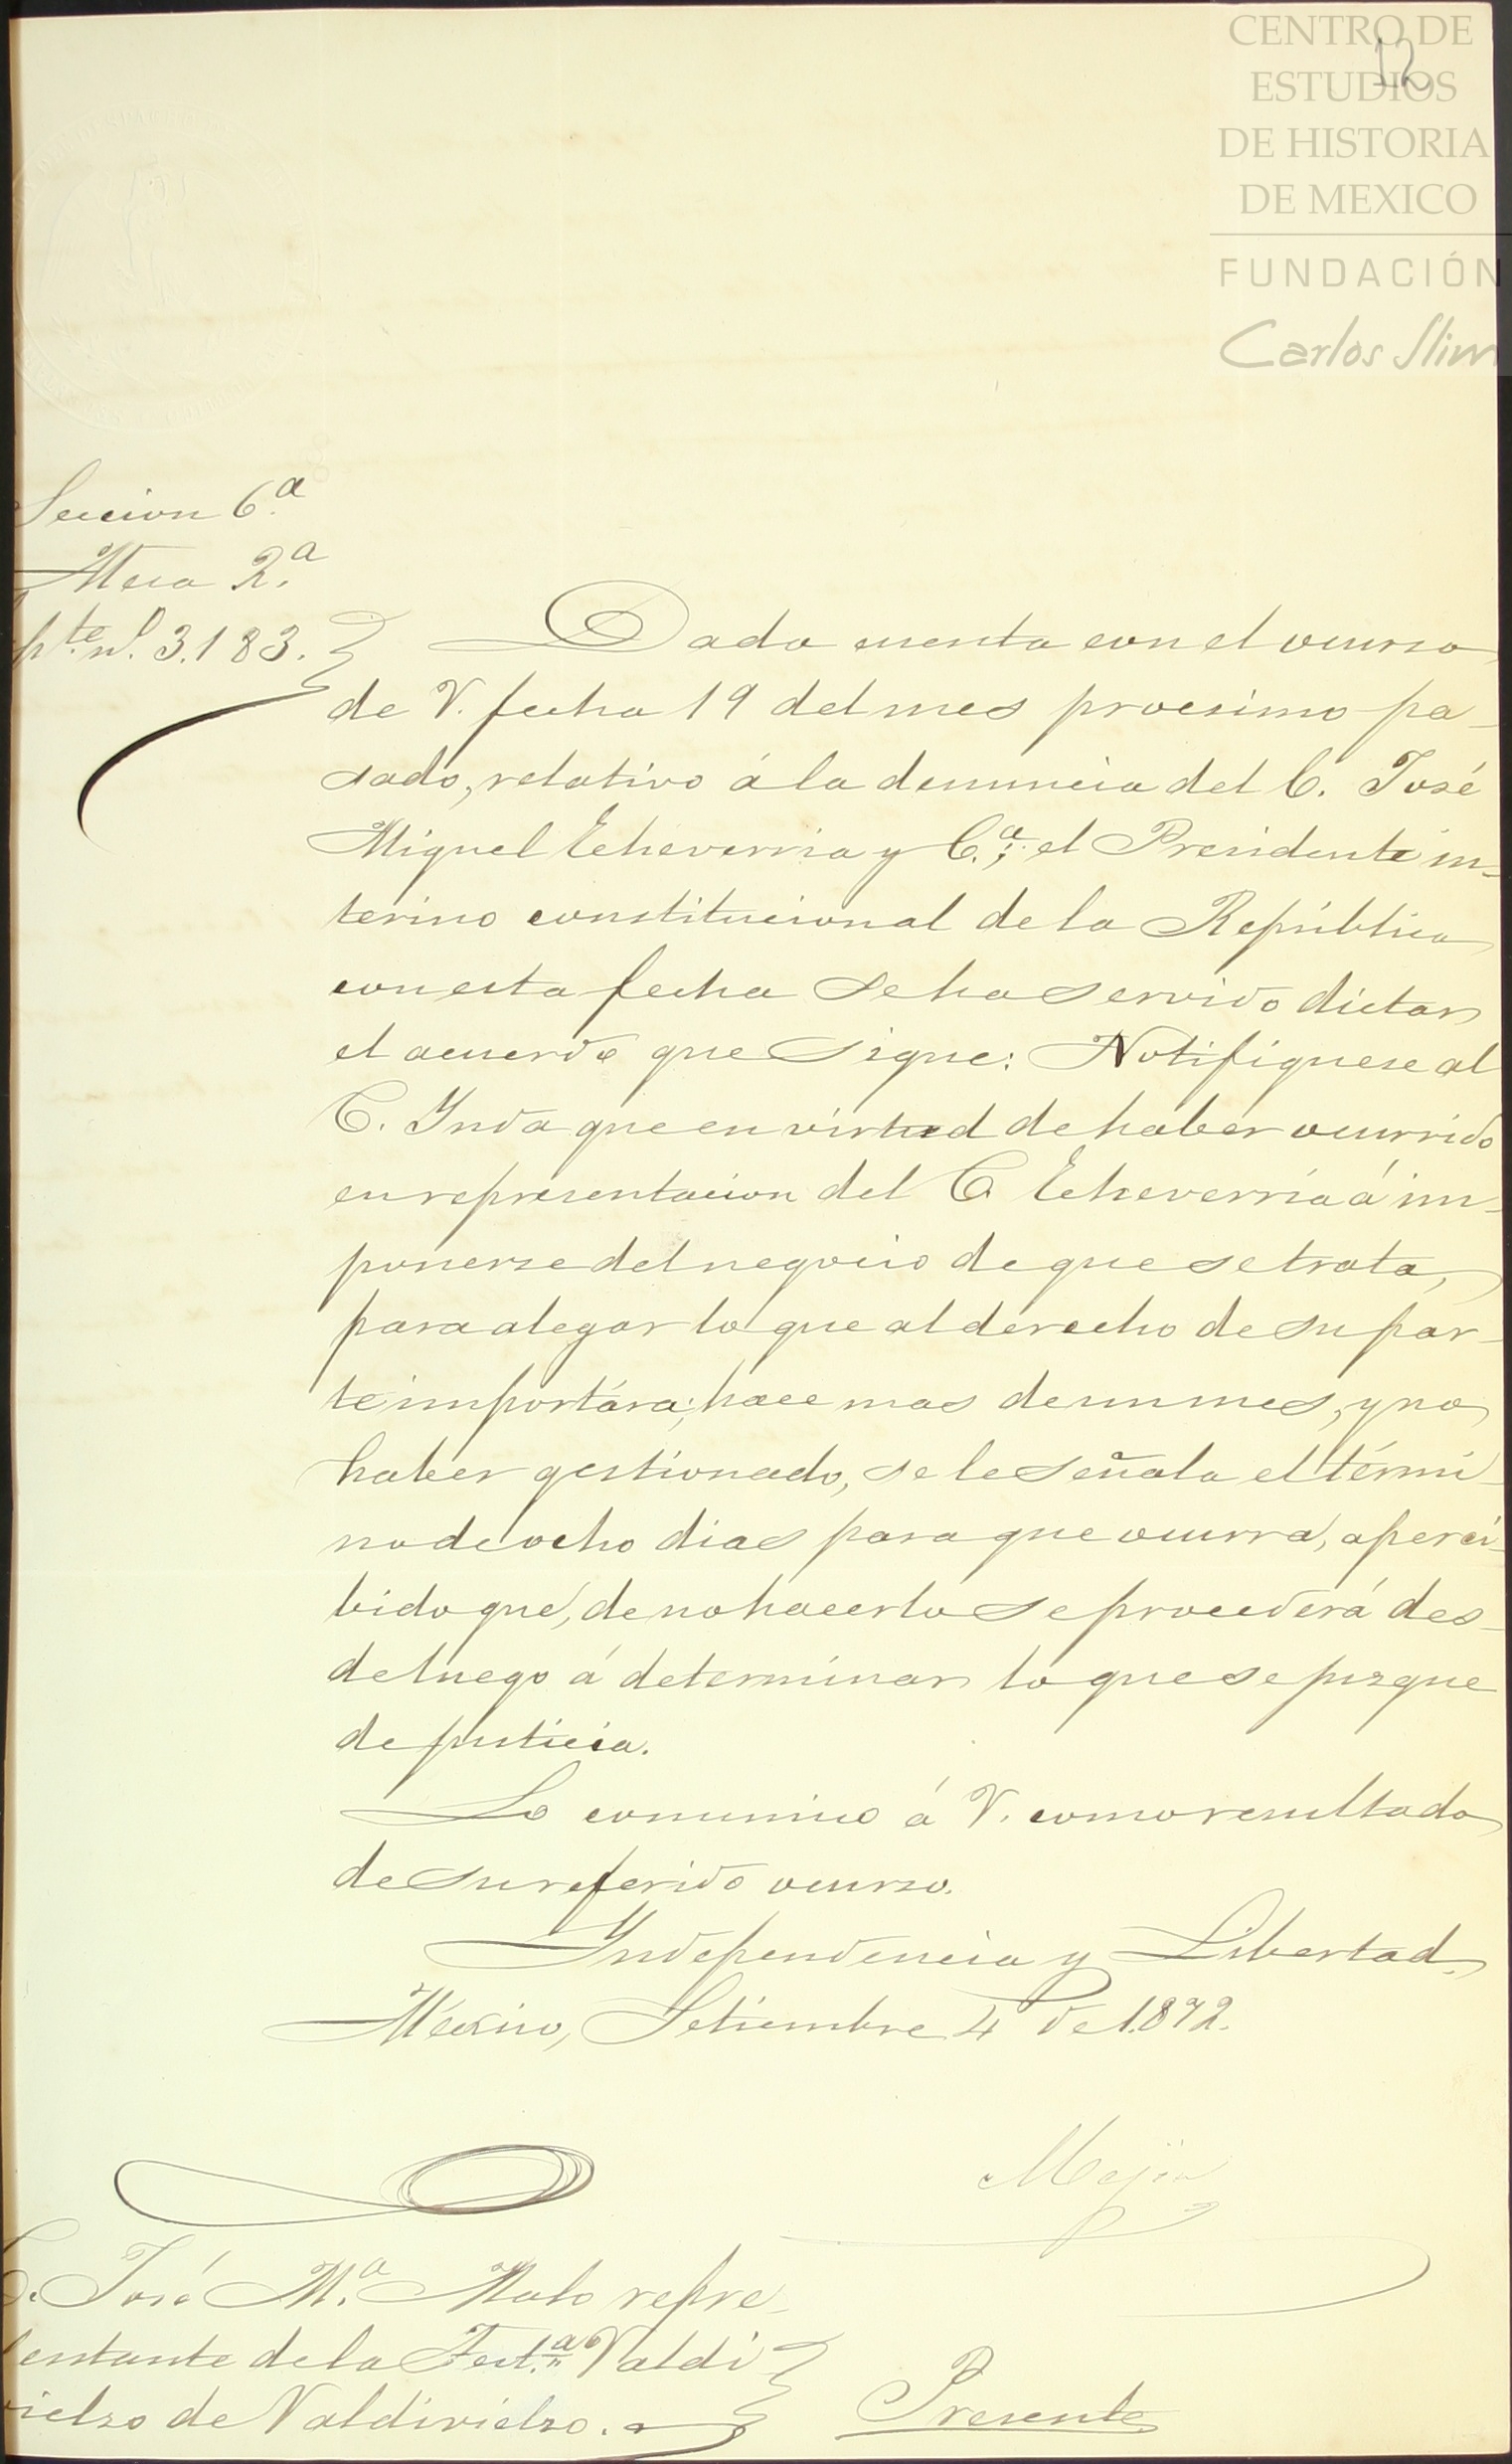 CENTRO DE
ESTUDIOS
DE HISTORIA
DE MEXICO
FUNDACIÓN
Carlos Slim
12
Seccion 6ª
Mesa 2ª
pte. nº. 3.183.
Dada cuenta con el ocurso
de V. fecha 19 del mes procsimo pa-
sado, relativo á la denuncia del C. José
Miguel Echeverria y C.ª; el Presidente in-
terino constitucional de la República
con esta fecha se ha servido dictar
el acuerdo que sigue: Notifiquese al
C. Ynda que en virtud de haber ocurrido
en representacion del C. Echeverría á im-
ponerse del negocio de que se trata,
para alegar lo que al derecho de su par-
te importára; hace mas de un mes, y no
haber gestionado, se le señala el térmi-
no de ocho dias para que ocurra, aperci-
bido que, de no hacerlo se procederá des-
de luego á determinar lo que se juzgue
de justicia.
Lo comunico á V. como resultado
de su referido ocurso.
Yndependencia y Libertad.
México, Setiembre 4 de 1872.
Mejía
C. José M.ª Malo repre-
sentante de la Test.ª Valdi
vielso de Valdivielso.
Presente